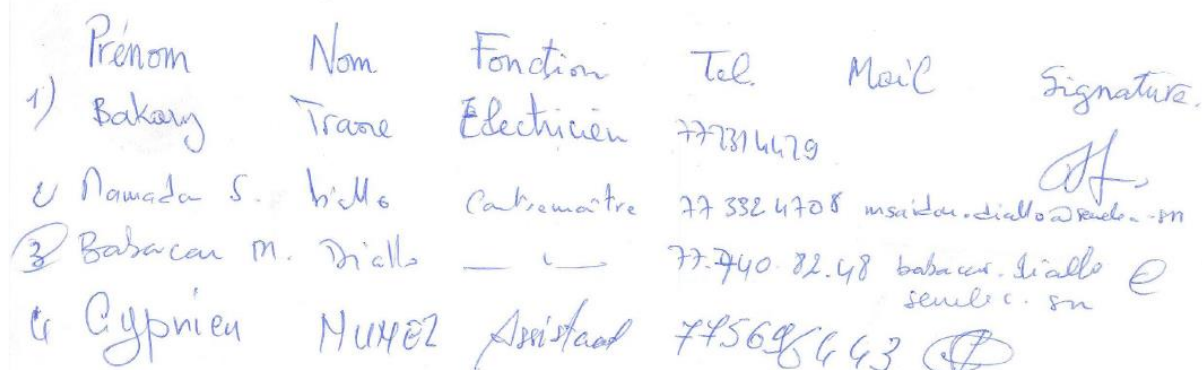 Prénom Nom Fonction Tel. Mail Signature.
1) Bakary Traore Electricien 772314429
2) Mamadou S. Diallo Contremaître 77 332 4708 msaidou.diallo@senelec.sn
3 Babacar M. Diallo — " — 77.740.82.48 babacar.diallo @
senelec.sn
4 Cyprien MUNEZ Assistant